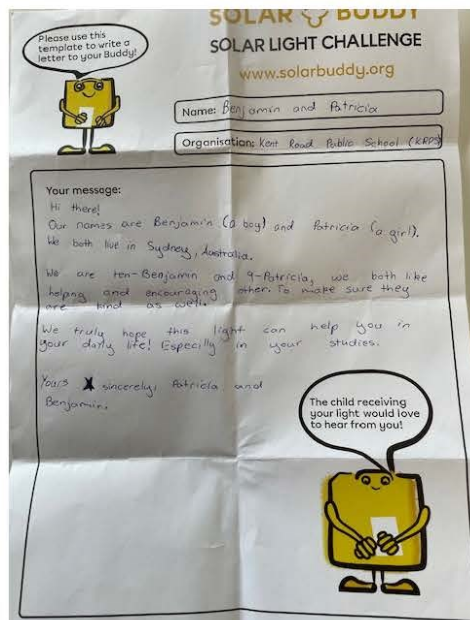 SOLAR BUDDY
SOLAR LIGHT CHALLENGE
www.solarbuddy.org
Please use this
template to write a
letter to your Buddy!
Name: Benjamin and Patricia
Organisation: Kent Road Public School (KRPS)
Your message:
Hi there!
Our names are Benjamin (a boy) and Patricia (a girl).
We both live in Sydney, Australia.
We are ten-Benjamin and 9-Patricia, we both like
helping and encouraging other. To make sure they
are kind as well.
We truly hope this light can help you in
your daily life! Especilly in your studies.
Yours sincerely, Patricia and
Benjamin.
The child receiving
your light would love
to hear from you!